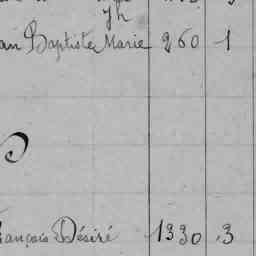 yh
an Baptiste Marie 260 1
rançois Désiré 1330 3